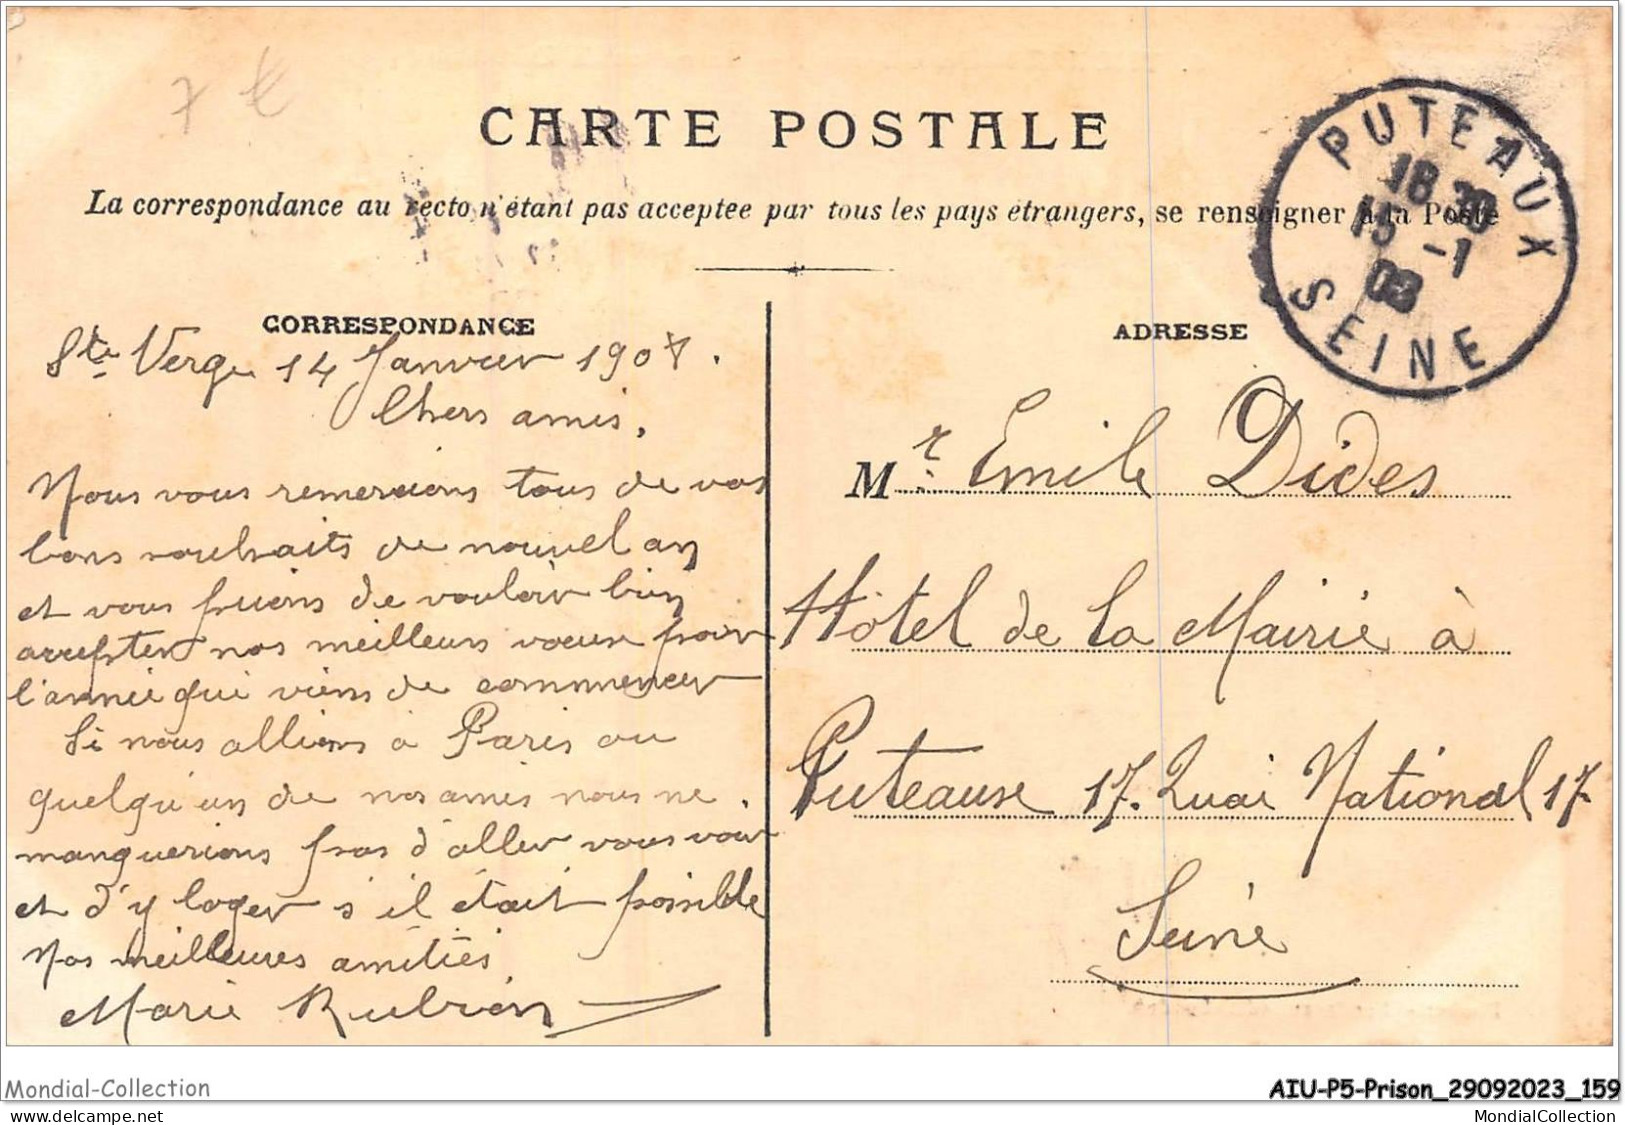 7 €
CARTE POSTALE
La correspondance au recto n'étant pas acceptée par tous les pays étrangers, se renseigner à la Poste
PUTEAUX
18 30
15 -1
08
SEINE
CORRESPONDANCE
Ste Verge 14 Janvier 1908.
Chers amis.
Nous vous remercions tous de vos
bons souhaits de nouvel an
et vous prions de vouloir bien
accepter nos meilleurs voeux pour
l'année qui viens de commencer
Si nous allions à Paris ou
quelqu'un de nos amis nous ne
manquerions pas d'aller vous voir
et d'y loger s'il était possible
Nos meilleures amitiés
Marie
ADRESSE
Mr. Emile Dides
Hôtel de la Mairie à
Puteaux 17. Quai National 17
Seine
Mondial-Collection
AIU-P5-Prison_29092023_159
MondialCollection